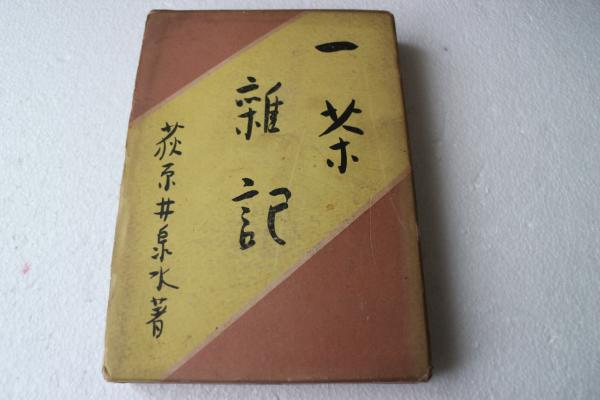 一茶
雜記
荻原井泉水著